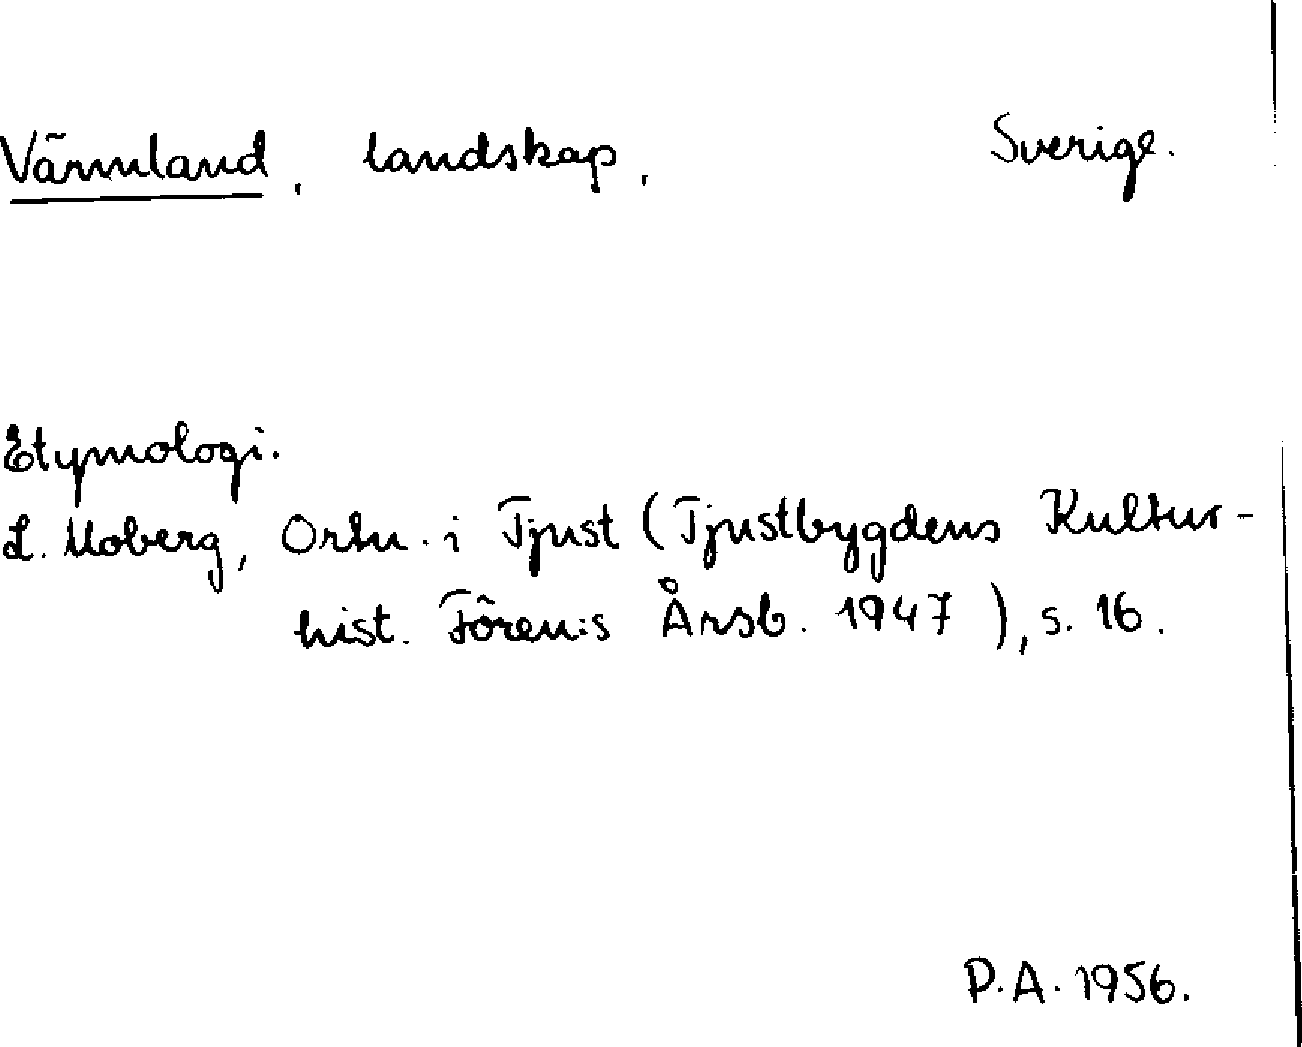 Värmland, landskap, Sverige.
Etymologi.
L. Moberg, Ortn. i Tjust (Tjustbygdens Kultur-
hist. Fören:s Årsb. 1947), s. 16.
P.A. 1956.